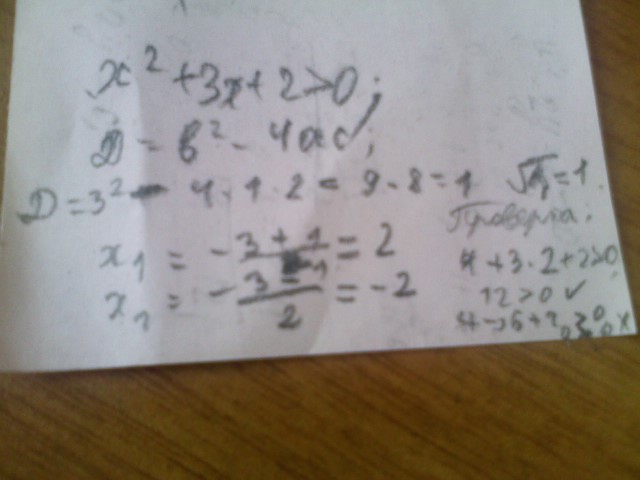 x² + 3x + 2 > 0;
D = b² - 4ac;
D = 3² - 4 · 1 · 2 = 9 - 8 = 1 √D = 1.
Проверка:
x₁ = -3 + 1 / = 2
4 + 3 · 2 + 2 > 0
x₂ = -3 - 1 / 2 = -2
12 > 0 ✓
4 - 6 + 2 > 0 x